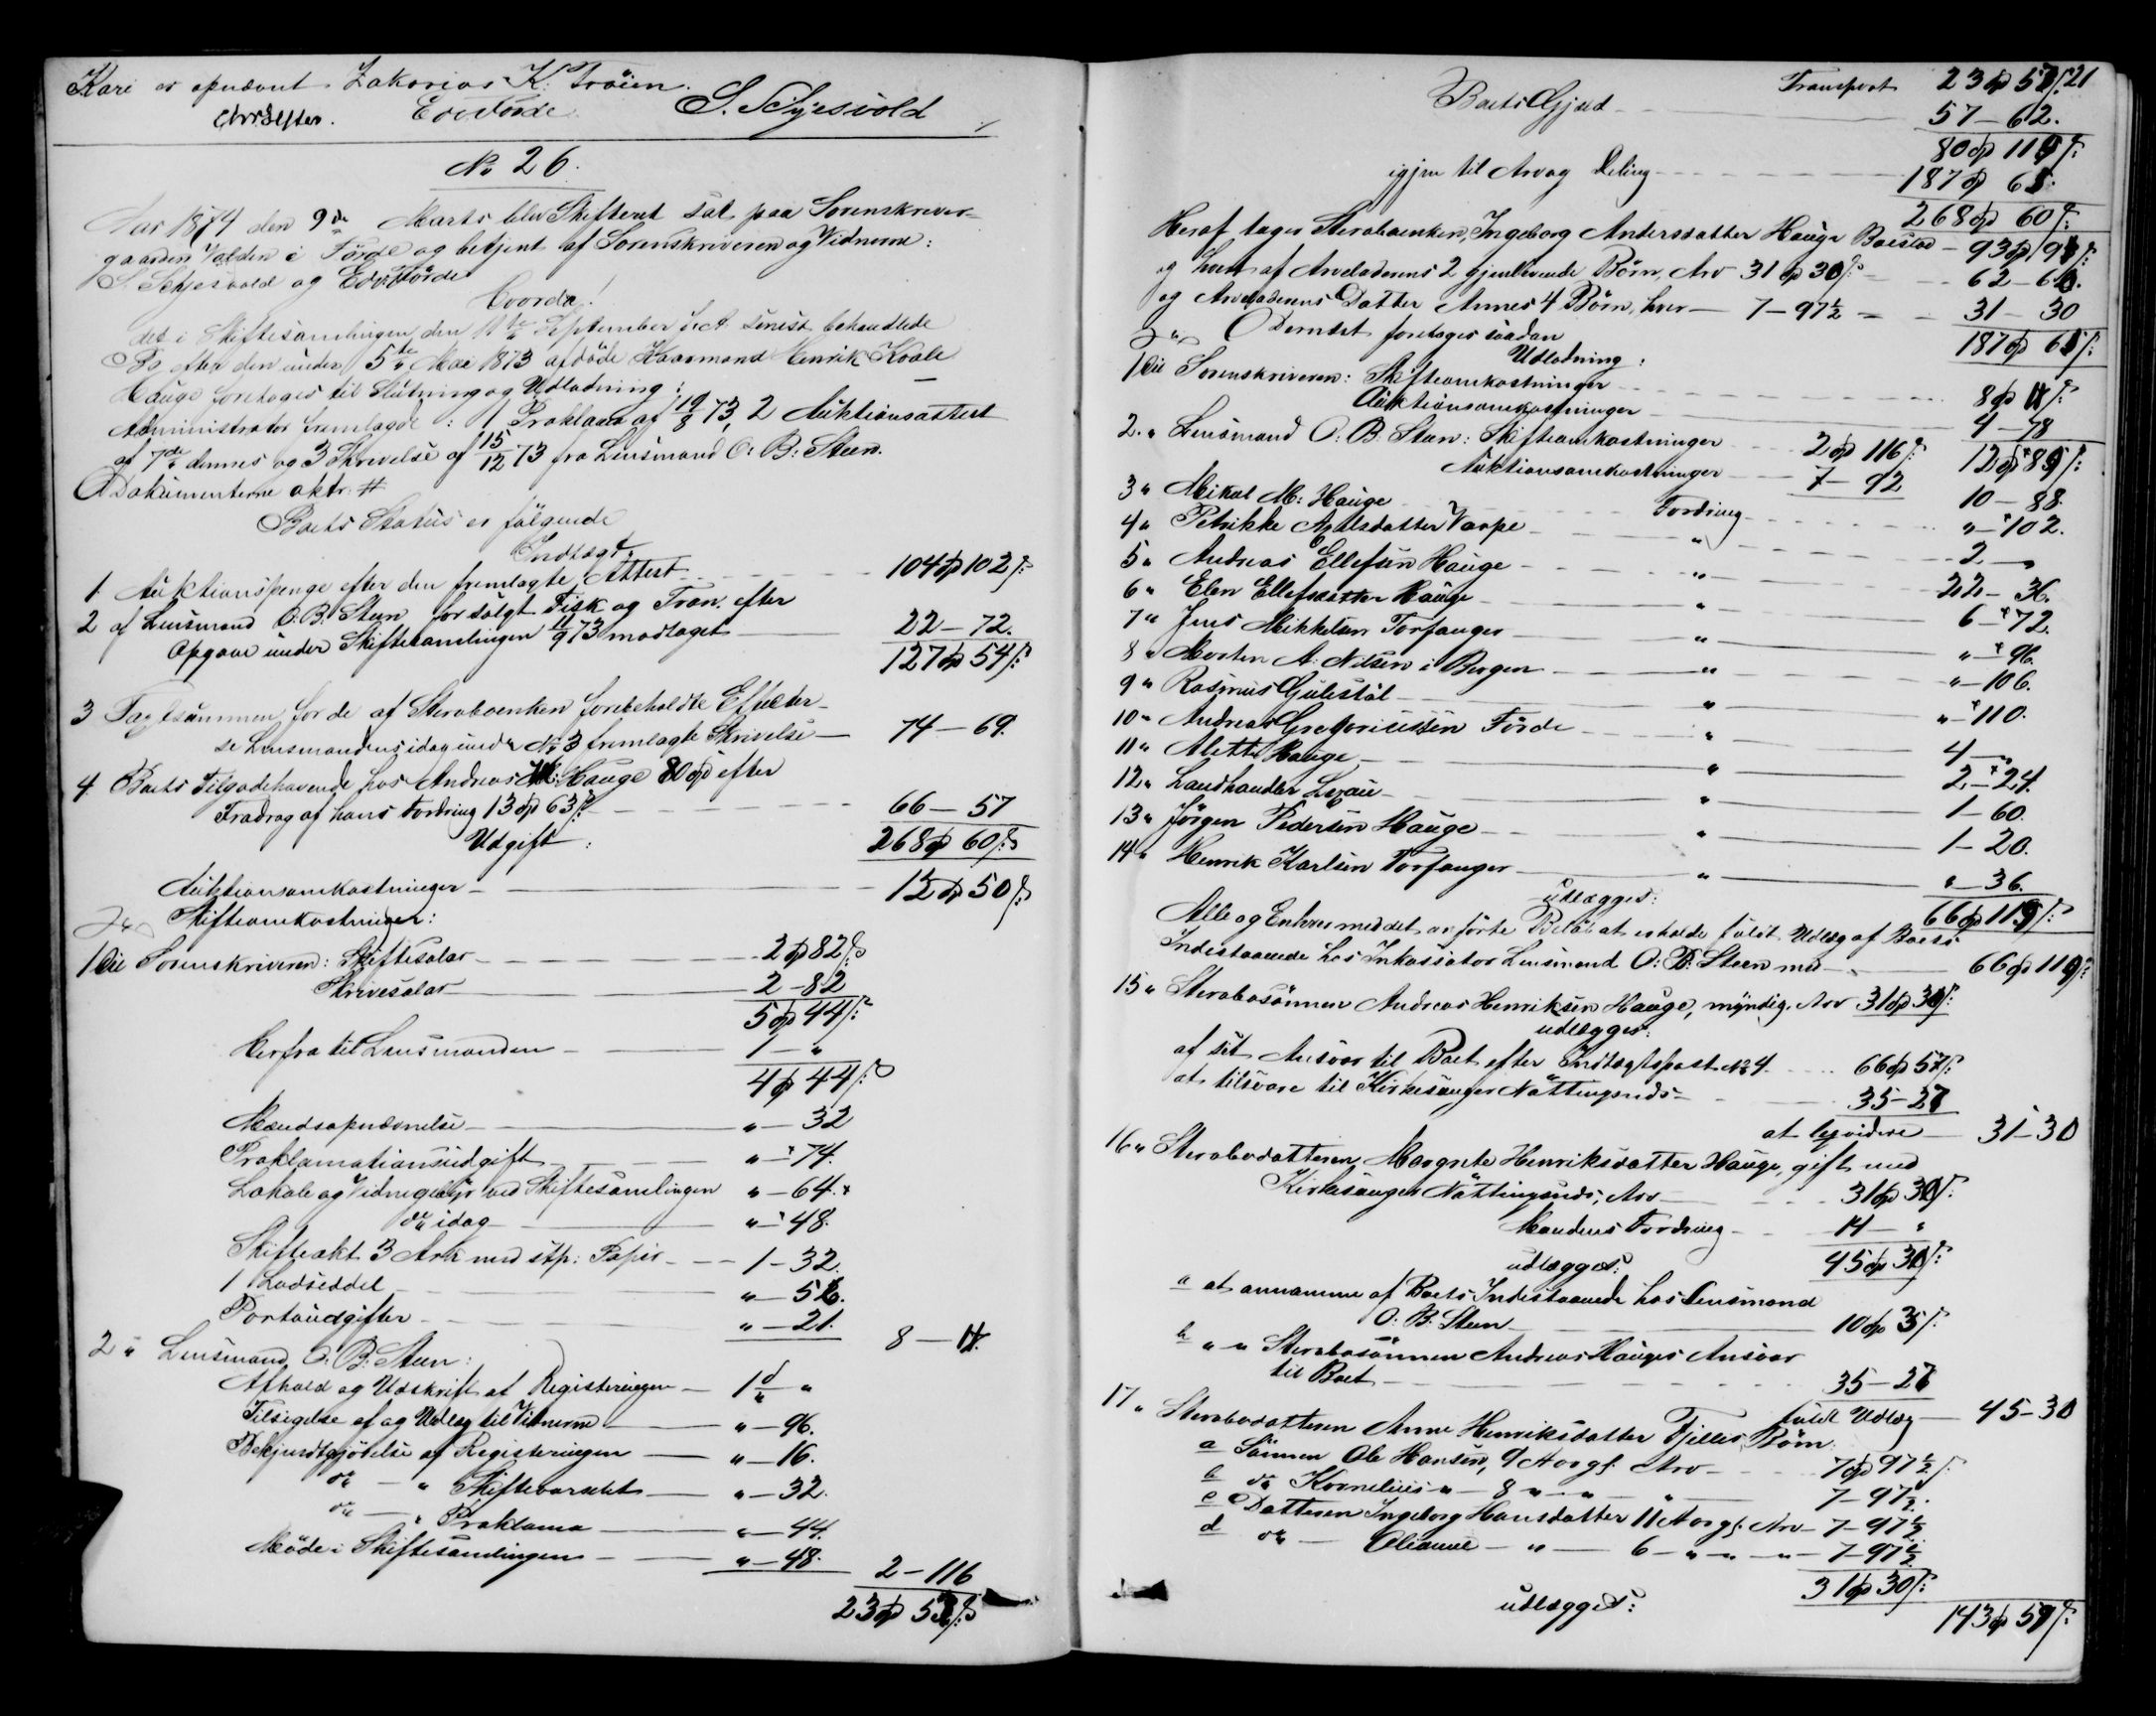 Kari er opnævnt Zakarias K. Træen.
Edv. Förde S. Schjesvold
No 26.
Aar 1874 den 9de Marts blev Skifteret sat paa Sorenskriver-
gaarden Valden i Förde og betjent af Sorenskriveren og Vidnerne:
S. Schjesvold og Edv. Förde
Hvorda!
det i Skiftesamlingen den 11te September f. A. senest behandlede
Bo efter den under 5te Mai 1873 afdöde Kaarmand Henrik Kaale
Hauge foretoges til Slutning og Udlodning:
Administrator fremlagde: 1 Proklama af 19/8 73, 2 Auktionsattest
af 7de dennes og 3 Skrivelse af 15/12 73 fra Lensmand O: B: Steen.
Dokumenterne aktr. #
Boets Status er fölgende
Indtægt.
1 Auktionspenge efter den fremlagte Attest 104 102
2 af Lensmand O. B. Steen for solgt Fisk og Tran efter
Opgave under Skiftesamlingen 11/9 73 modtaget 22 – 72.
127 54
3 Taxtsummen for de af Sterboenken forebeholdte Effekter
se Lensmandens idag under No 3 fremlagte Skrivelse – 74 – 69.
4. Boets Tilgodehavende hos Andreas H: Hauge 80 efter
Fradrag af hans Fordring 13 63 66 – 57
Udgift: 268 60
Auktionsomkostninger 12 50
Skifteomkostninger:
1 Til Sorenskriveren: Skiftesalær 2 82
Skrivesalær 2 – 82
5 44
Herfra til Lensmanden 1 – "
4 44
Mændsopnævnelse " – 32
Proklamationsudgift " – 74.
Lokale og Vidnegebyr ved Skiftesamlingen " – 64.
do idag " – 48.
Skifteakt 3 Ark med stp: Papir 1 – 32.
1 Lodseddel " – 56.
Portoudgifter " – 21. 8 – 11.
2 " Lensmand O. B. Steen:
Afhold og Udskrift af Registeringen – 1 "
Tilsigelse af og Udlæg til Vidnerne " – 96.
Bekjendtgjörelse af Registeringen " – 16.
do – " Skiftevarselet " – 32.
do – " Proklama " – 44.
Möde i Skiftesamlingen " – 48. 2 – 116
23 57
21
Transport 23 57
Boets Gjæld 57 – 62.
80 119
igjen til Arv og Deling 187 61
268 60
Heraf tager Sterboenken, Ingeborg Andersdatter Hauge Boeslod – 93 91
og hver af Arveladerens 2 gjenlevende Börn, Arv 31 30 62 – 60.
og Arveladerens Datter Annes 4 Börn, hver – 7 – 97½ – 31 – 30
187 61
Dernæst foretoges saadan
Udlodning:
1 Til Sorenskriveren: Skifteomkostninger 8 11
Auktionsomkostninger 4 – 78
12 89
2. " Lensmand O. B. Steen: Skifteomkostninger 2 116
Auktionsomkostninger 7 – 92 10 – 88.
3 " Mikal M: Hauge Fordring " – 102.
4 " Petrikke Axelsdatter Varpe " 2 – "
5 " Andreas Ellefsen Hauge " 22 – 36.
6 " Elen Ellefsdatter Hauge " 6 – 72.
7 " Jens Mikkelsen Torfanger " " – 96.
8 " Morten A. Nilsen i Bergen " " – 106.
9 " Rasmus Gulestöl " " – 110.
10 " Andreas Gregoriussen Förde " 4 – "
11 " Alette Hauge " 2 – 24.
12 " Landhandler Lexau " 1 – 60.
13 " Jörgen Pedersen Hauge " 1 – 20.
14 " Henrik Karlsen Torfanger " " – 36.
udlægges: 66 119
Alle og Enhver med det anförte Belöb at erholde fuldt Udlæg af Boets
Indestaaende hos Inkassator Lensmand O: B: Steen med 66 119
15 " Sterbosönnen Andreas Henriksen Hauge, myndig. Arv 31 30
udlægges:
af sit Ansvar til Boet efter Indtægtspost No 4 66 57
at tilsvare til Kirkesanger Nöttingsnes 35 – 27
at liqvidere 31 – 30
16 " Sterbodatteren Margrete Henriksdatter Hauge, gift med
Kirkesanger Nöttingsnes, Arv 31 30
Mandens Fordring 14 – "
udlægges: 45 30
a at annamme af Boets Indestaaende hos Lensmand
O. B. Steen 10 3
b " " Sterbosönnen Andreas Hauges Ansvar
til Boet 35 – 27
fuldt Udlæg 45 – 30
17 " Sterbodatteren Anne Henriksdatter Fjelles Börn
a Sönnen Ole Hansen, 9 Aar gl. Arv 7 97½
b do Kornelius " – 8 " – " – " 7 – 97½.
c Datteren Ingeborg Hansdatter 11 Aar gl. Arv – 7 – 97½
d do – Olianne – " – 6 – " – " – " – 7 – 97½
31 30
udlægges: 143 59